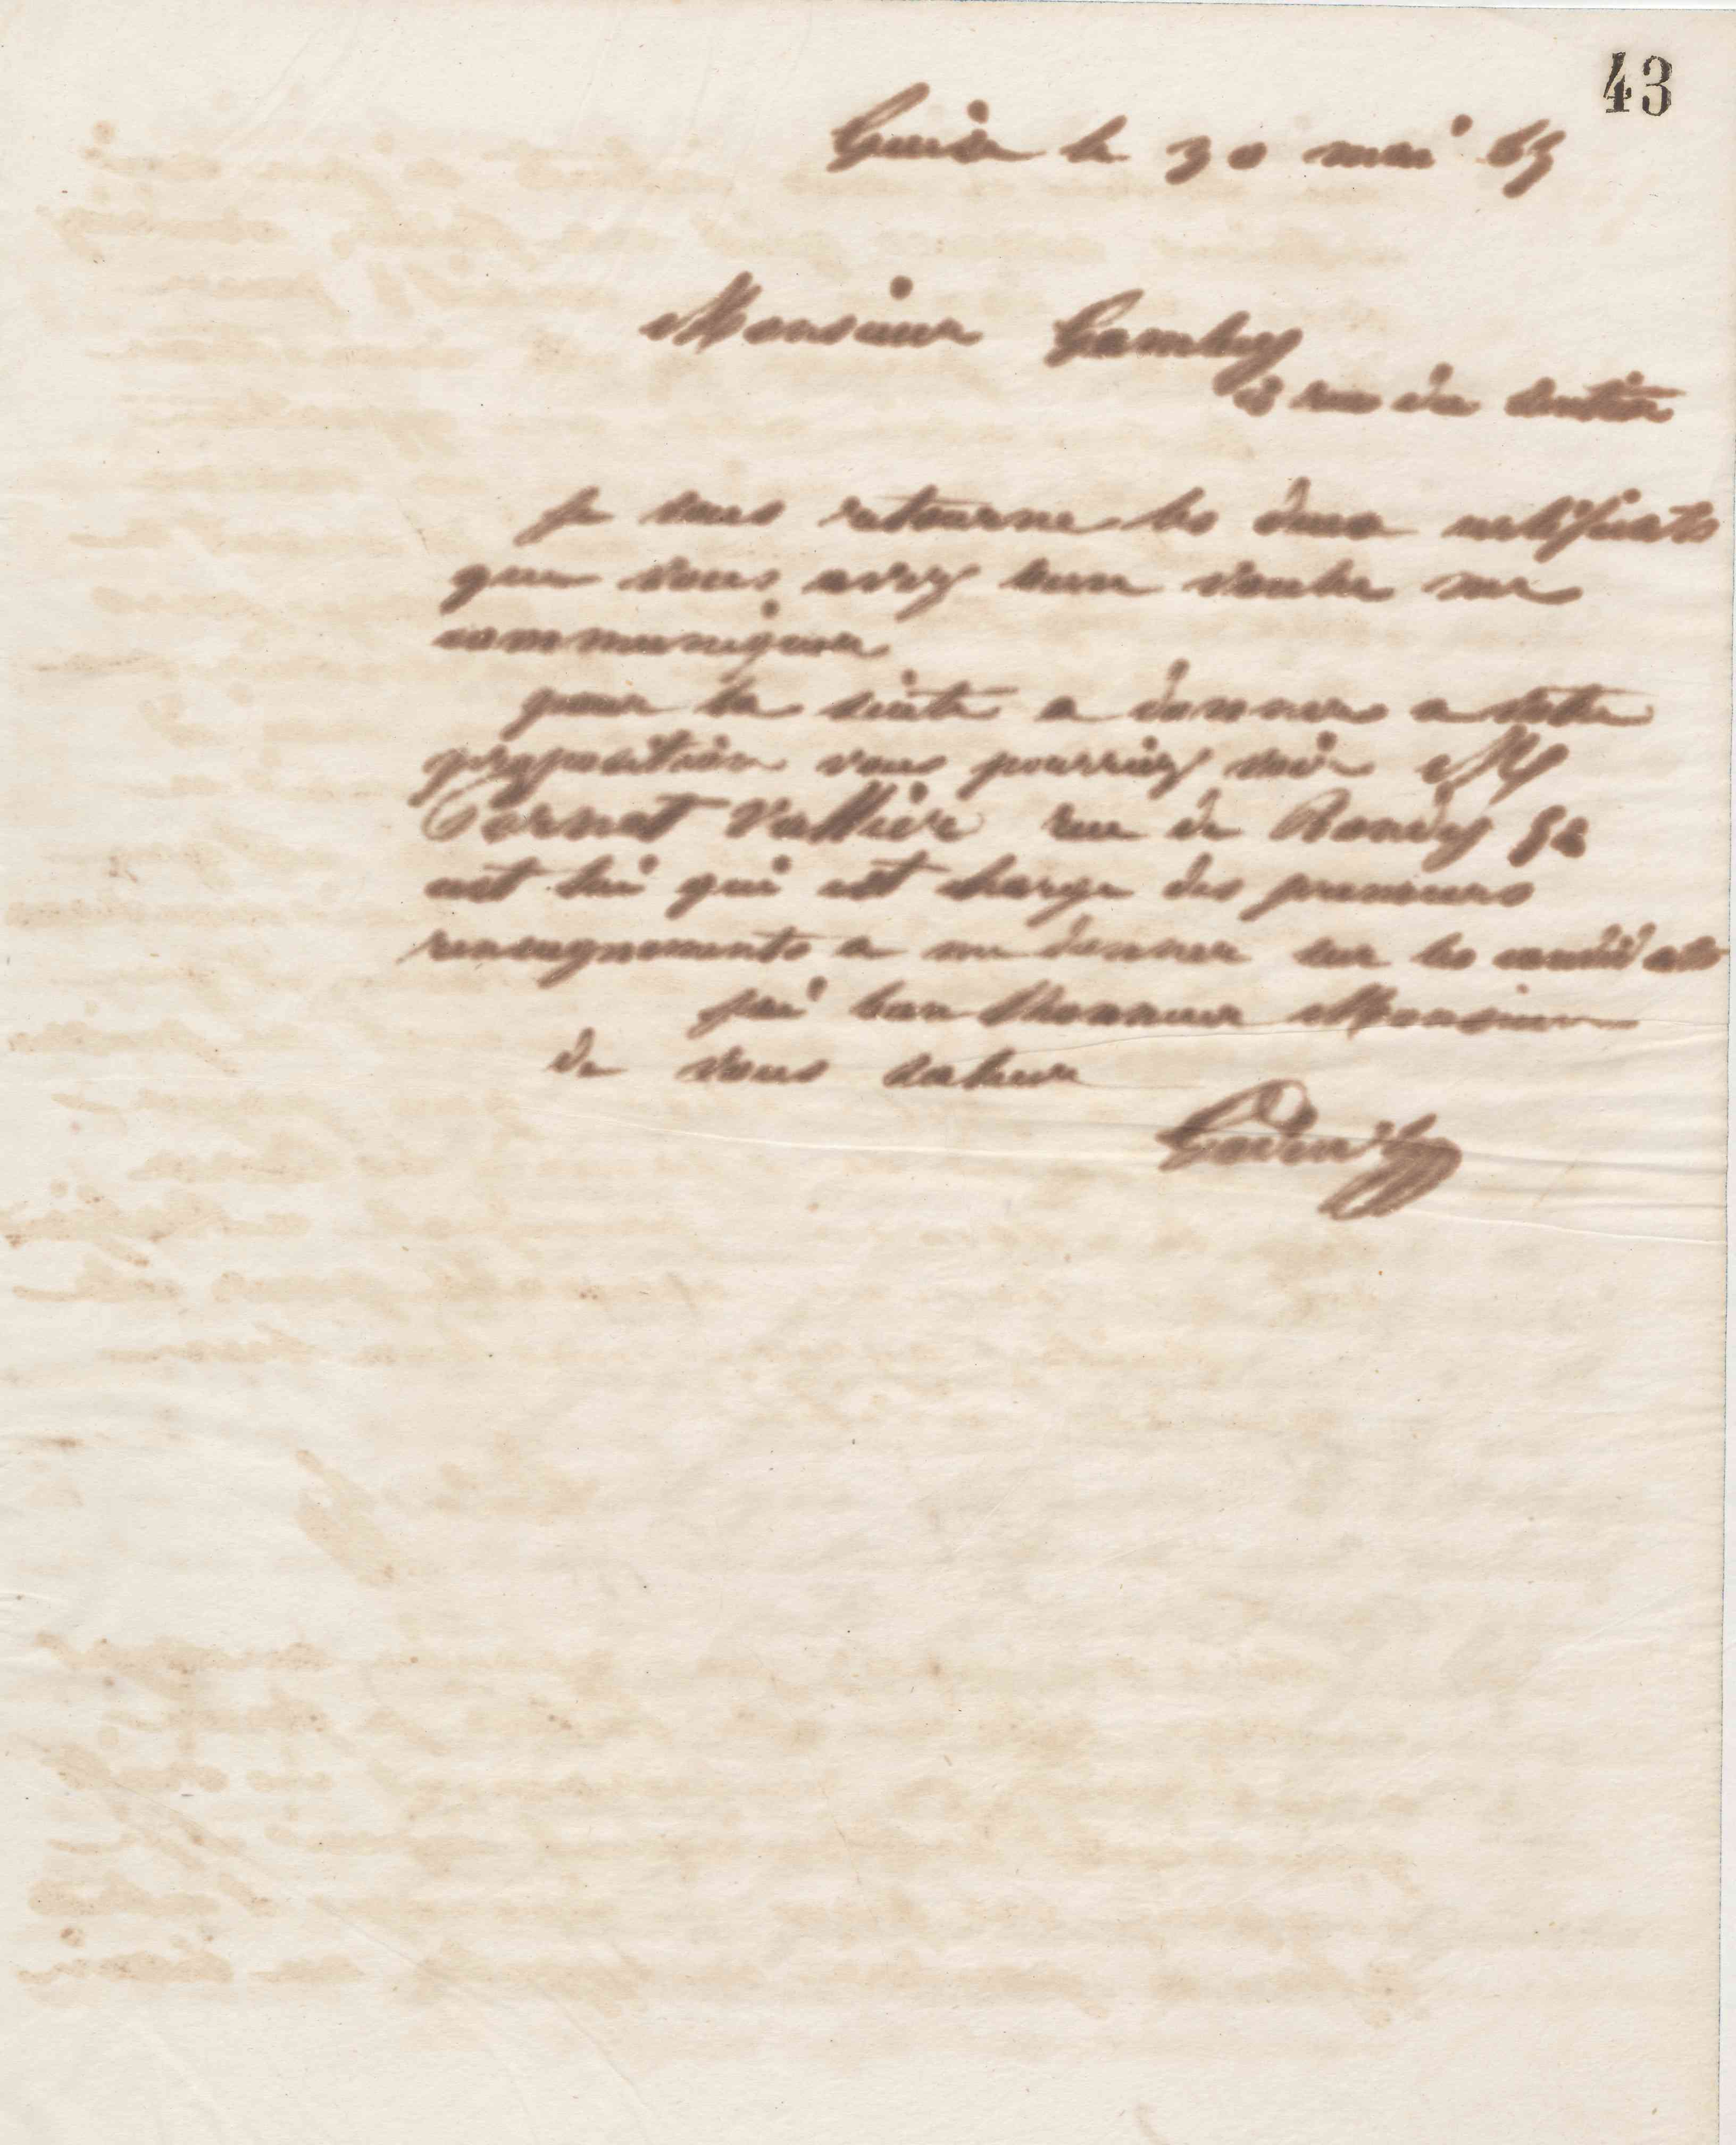 43
Guise le 30 mai 65
Monsieur Gambey
rue du Sentier
je vous retourne les deux certificats
que vous avez bien voulu me
communiquer
pour la suite a donner a votre
proposition vous pourriez voir M
Cornet Vallier rue de Bondy 52
cest lui qui est charge des premiers
renseignements a me donner sur les candidats
jai bien lhonneur Monsieur
de vous saluer
Godin